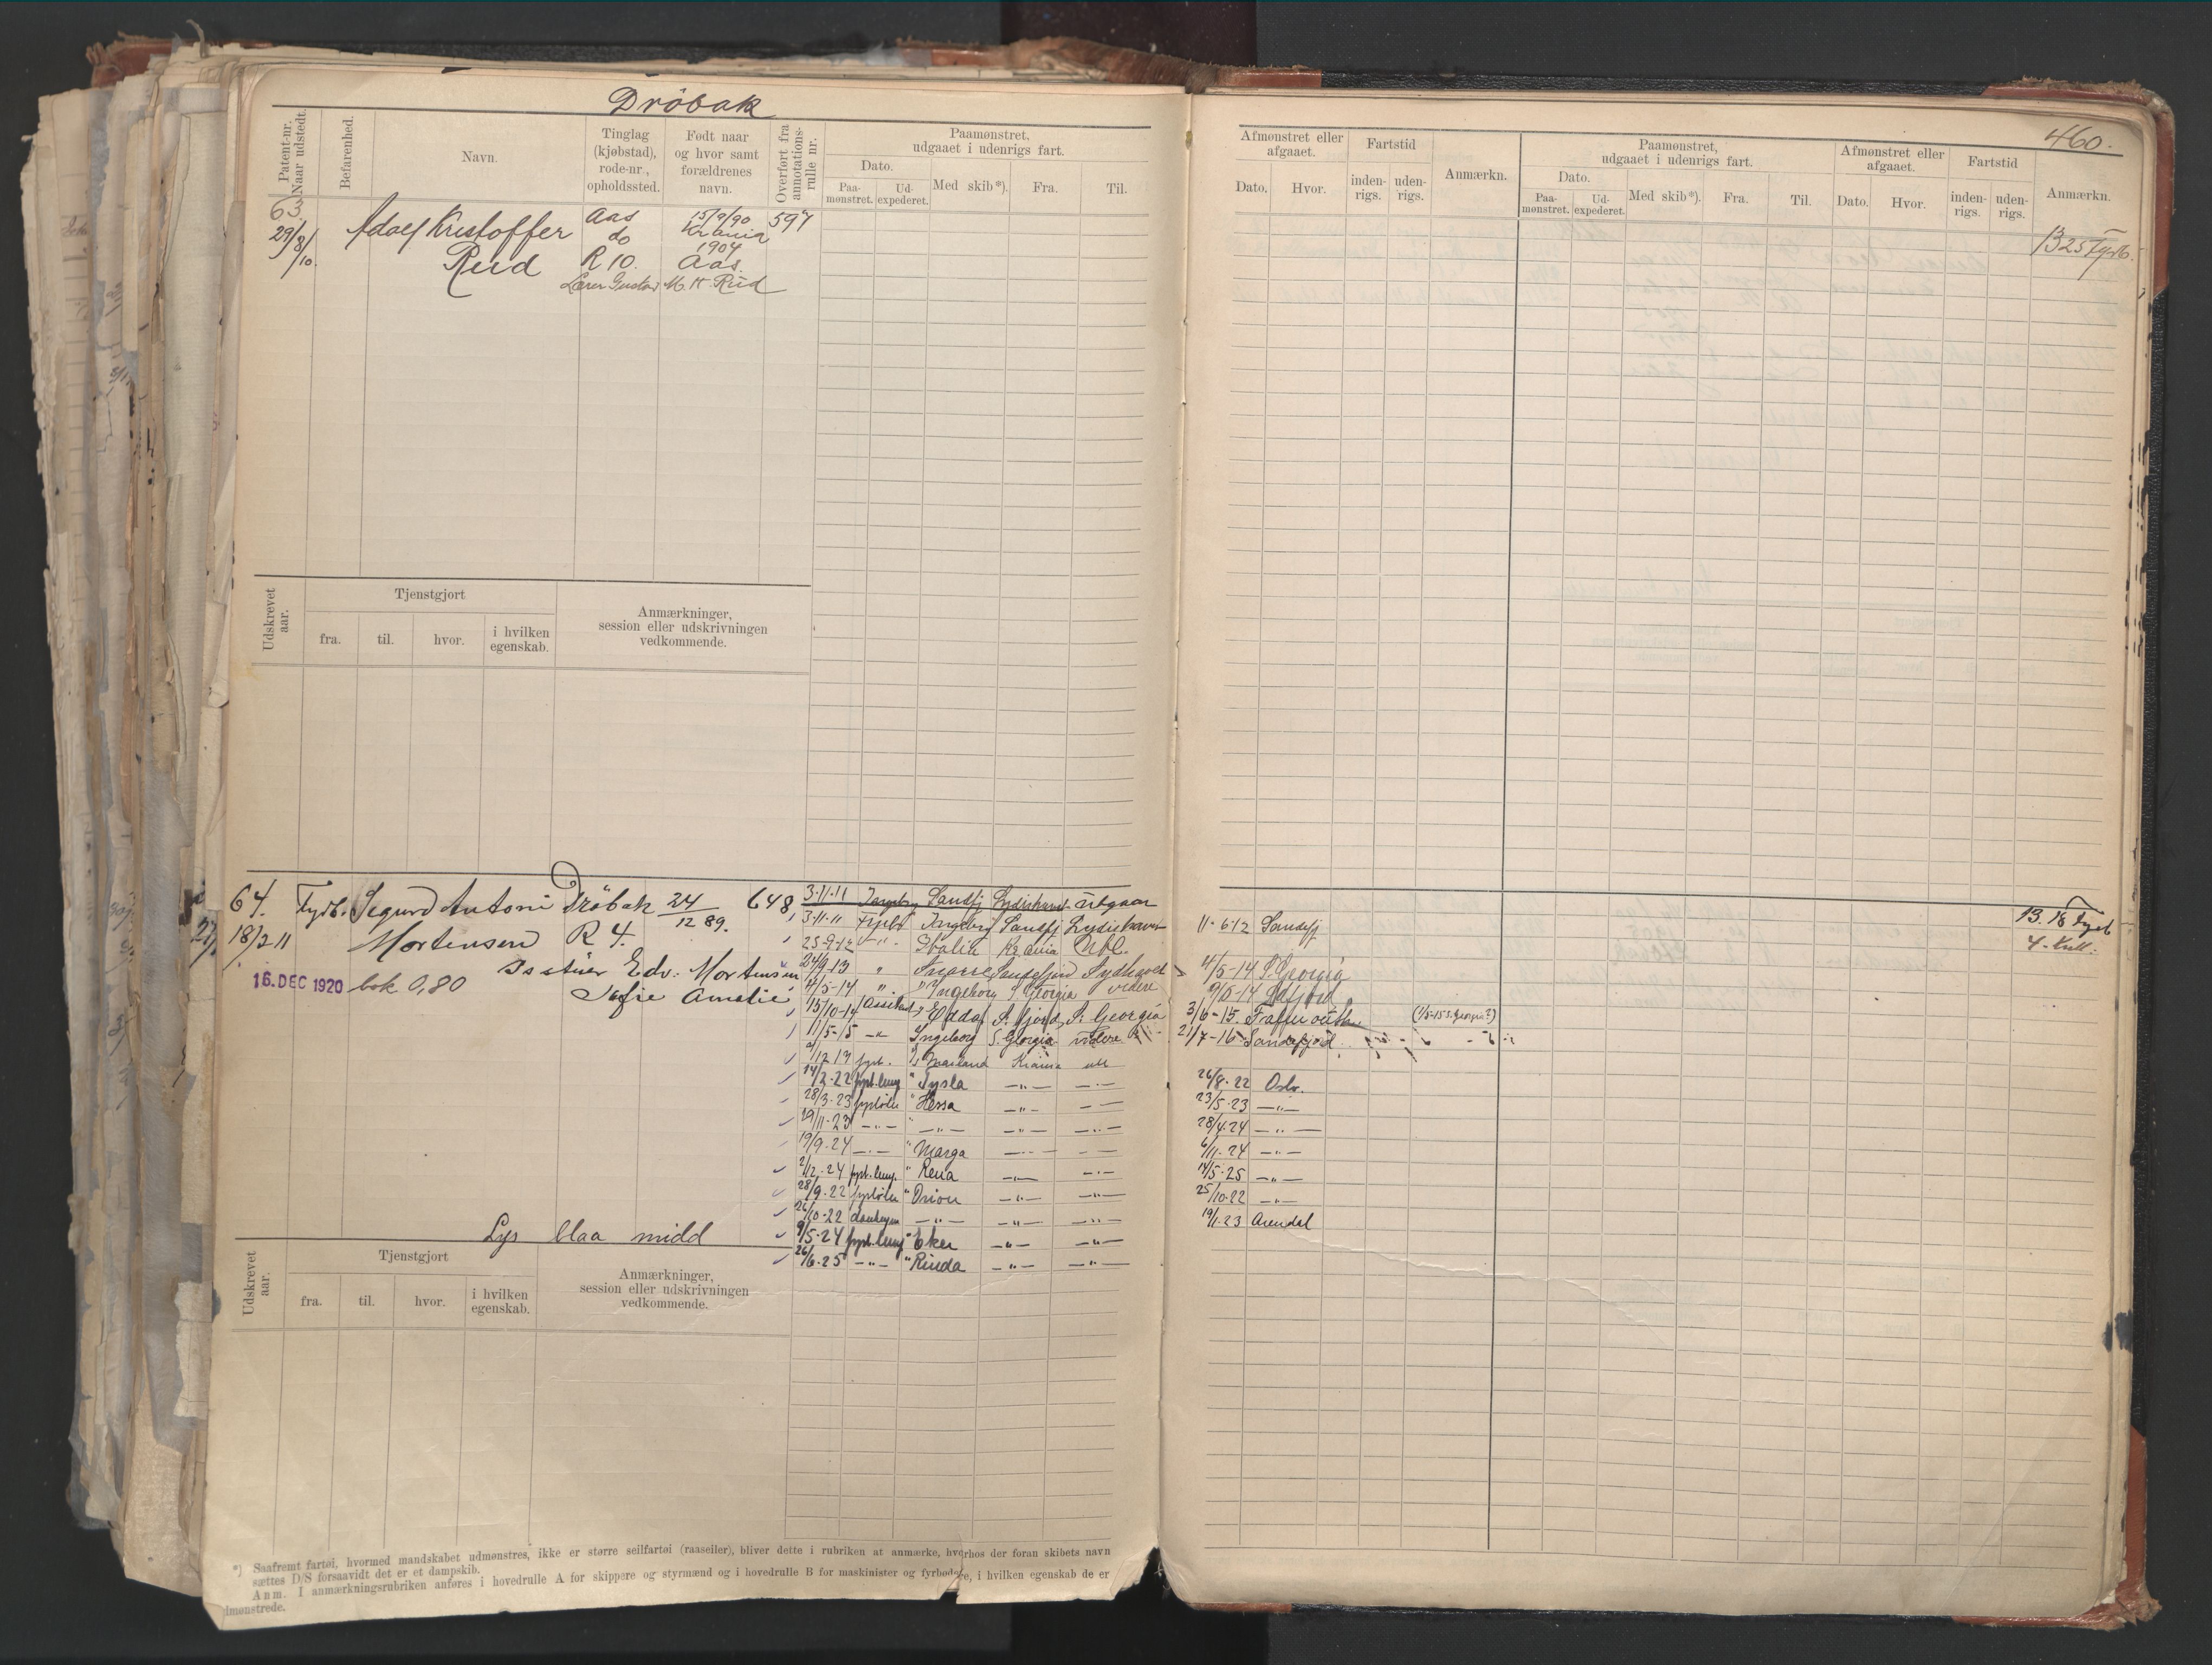 Dröbak
460.
Patent-nr. Naar udstedt.
Befarenhed.
Navn.
Tinglag (kjøbstad), rode-nr., opholdssted.
Født naar og hvor samt forældrenes navn.
Overført fra annotations-rulle nr.
Paamønstret, udgaaet i udenrigs fart.
Dato.
Paa-mønstret. Ud-expederet. Med skib*). Fra. Til.
Afmønstret eller afgaaet.
Dato. Hvor.
Fartstid
inden-rigs. uden-rigs.
Anmærkn.
Paamønstret, udgaaet i udenrigs fart.
Dato.
Paa-mønstret. Ud-expederet. Med skib*). Fra. Til.
Afmønstret eller afgaaet.
Dato. Hvor.
Fartstid
inden-rigs. uden-rigs.
Anmærkn.
63 Adolf Kristoffer Aas 15/9/90 597
29/8/10. Rud do Krania
R 10. 1904 Aas.
Lærer Gustav M. H. Rud
1325 Fyrb.
Udskrevet aar.
Tjenstgjort
fra. til. hvor. i hvilken egenskab.
Anmærkninger, session eller udskrivningen vedkommende.
64. Fyrb. Sigurd Antoni Dröbak 24/12 89. 648
18/2 11 Mortensen R 4.
Isstuer Edv. Mortensen
16. DEC 1920 bok 0,80 Sofie Amalie
3-11-11 Ingebg Sandfj Sydishavet utgaar
3-11-11 Fyrbö Ingebg Sandfj Sydishavet 11-6-12 Sandefj 13.18 Fyrb
25-9-12 -"- Italia Krania Ubl. 4-Kull.
24/9 13 " Snorre Sandefjord Sydhavet 4/5-14 S. Georgia
4/5-14 " Ingeborg S. Georgia videre 9/5-14
15/10-14 Edda S. fjord S. Georgia 3/6-15. (1/5-15 S. Georgia?)
11/5-15 -"- Ingeborg S. Georgia videre 21/7-16 Sandefjord
/12 13 fyrb. Krania utl
14/2-22 fyrb.lemp " Tysla -"- -"- 26/8-22 Oslo.
28/3-23 fyrböter " Hessa -"- -"- 23/5-23 -"-
19/11-23 -"- -"- -"- -"- 28/4-24 -"-
19/9-24 -"- " Marga -"- -"- 6/11-24 -"-
2/12-24 fyrb.lemp. " Rena -"- -"- 14/5-25 -"-
28/9-22 fyrböter " Orion -"- -"- 25/10-22 -"-
26/10-22 donkeym -"- -"- -"- 19/1-23 Arendal
9/5-24 fyrb.lemp " Eker -"- -"-
26/6-25 -"- " Rinda -"- -"-
Lys blaa midd
Udskrevet aar.
Tjenstgjort
fra. til. hvor. i hvilken egenskab.
Anmærkninger, session eller udskrivningen vedkommende.
*) Saafremt fartøi, hvormed mandskabet udmønstres, ikke er større seilfartøi (raaseiler), bliver dette i rubriken at anmærke, hvorhos der foran skibets navn
sættes D/S forsaavidt det er et dampskib.
Anm. I anmærkningsrubriken anføres i hovedrulle A for skippere og styrmænd og i hovedrulle B for maskinister og fyrbødere, i hvilken egenskab de er
dmønstrede.